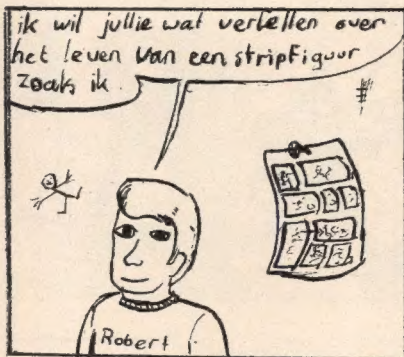 ik wil jullie wat vertellen over
het leven van een stripfiguur
zoals ik
Robert